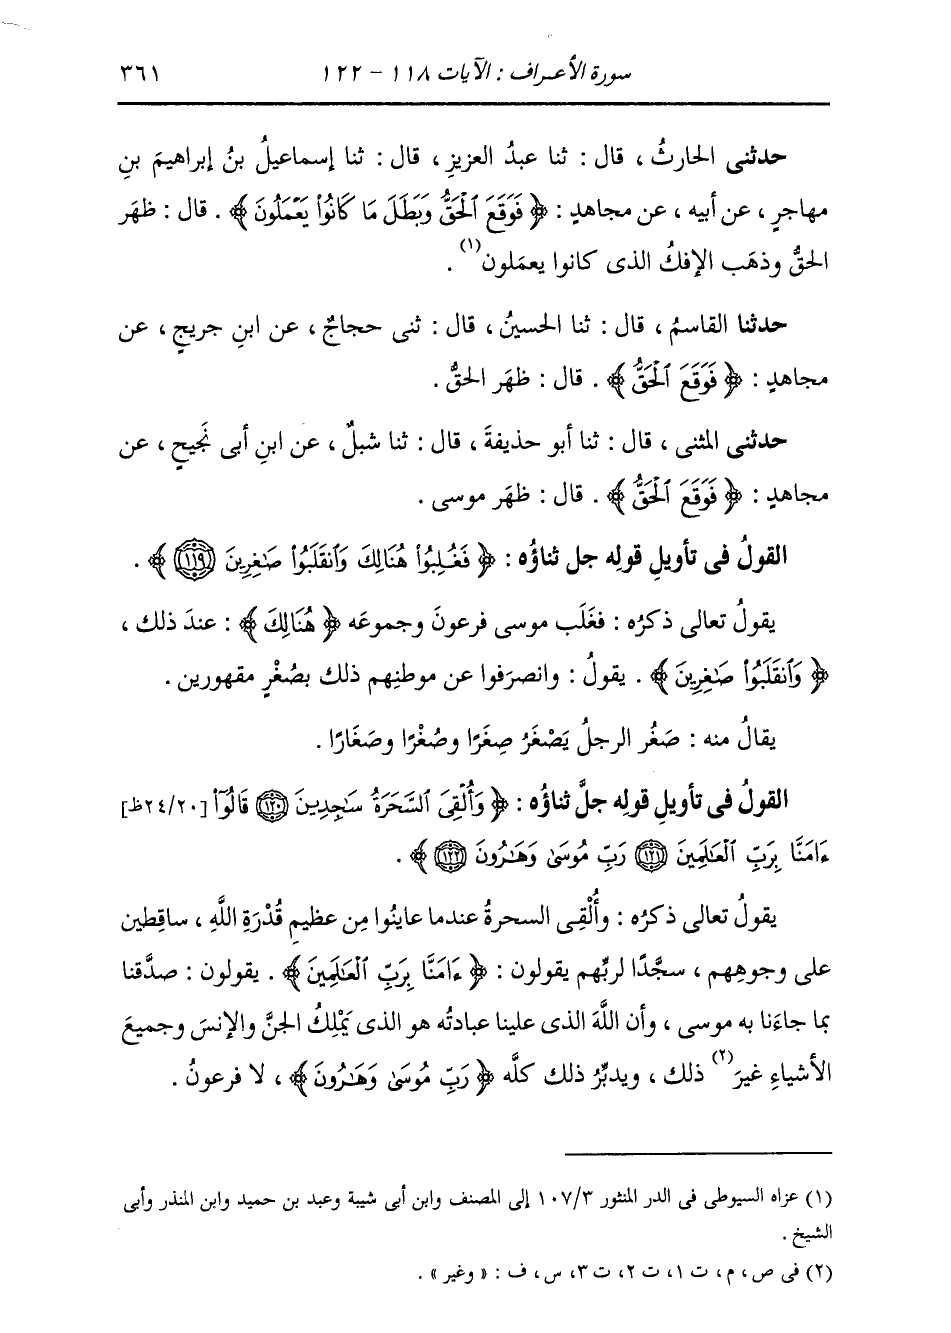 سورة الأعراف : الآيات ١١٨ - ١٢٢ ٣٦١
حدثنى الحارثُ ، قال : ثنا عبدُ العزيزِ ، قال : ثنا إسماعيلُ بنُ إبراهيمَ بنِ
مهاجرٍ ، عن أبيه ، عن مجاهدٍ : ﴿ فَوَقَعَ ٱلْحَقُّ وَبَطَلَ مَا كَانُوا۟ يَعْمَلُونَ ﴾ . قال : ظهَر
الحقُّ وذهَب الإفكُ الذى كانوا يعمَلون(١) .
حدثنا القاسمُ ، قال : ثنا الحسينُ ، قال : ثنى حجاجٌ ، عن ابنِ جريجٍ ، عن
مجاهدٍ : ﴿ فَوَقَعَ ٱلْحَقُّ ﴾ . قال : ظهَر الحقُّ .
حدثنى المثنى ، قال : ثنا أبو حذيفةَ ، قال : ثنا شبلٌ ، عن ابنِ أبى نَجيحٍ ، عن
مجاهدٍ : ﴿ فَوَقَعَ ٱلْحَقُّ ﴾ . قال : ظهَر موسى .
القولُ فى تأويلِ قولِه جل ثناؤُه : ﴿ فَغُلِبُوا۟ هُنَالِكَ وَٱنقَلَبُوا۟ صَٰغِرِينَ ١١٩ ﴾ .
يقولُ تعالى ذكرُه : فغَلَب موسى فرعونَ وجموعَه ﴿ هُنَالِكَ ﴾ : عندَ ذلك ،
﴿ وَٱنقَلَبُوا۟ صَٰغِرِينَ ﴾ . يقولُ : وانصرَفوا عن موطنِهم ذلك بصُغْرٍ مقهورين .
يقالُ منه : صَغُر الرجلُ يَصْغَرُ صِغَرًا وصُغْرًا وصَغَارًا .
القولُ فى تأويلِ قولِه جلَّ ثناؤُه : ﴿ وَأُلْقِىَ ٱلسَّحَرَةُ سَٰجِدِينَ ١٢٠ قَالُوٓا۟ [٢٤/٢٠ظ]
ءَامَنَّا بِرَبِّ ٱلْعَٰلَمِينَ ١٢١ رَبِّ مُوسَىٰ وَهَٰرُونَ ١٢٢ ﴾ .
يقولُ تعالى ذكرُه : وأُلْقِى السحرةُ عندما عاينُوا مِن عظيمِ قُدْرَةِ اللَّهِ ، ساقِطين
على وجوهِهم ، سجَّدًا لربِّهم يقولون : ﴿ ءَامَنَّا بِرَبِّ ٱلْعَٰلَمِينَ ﴾ . يقولون : صدَّقنا
بما جاءَنا به موسى ، وأن اللَّهَ الذى علينا عبادتُه هو الذى يَمْلِكُ الجنَّ والإنسَ وجميعَ
الأشياءِ غيرَ(٢) ذلك ، ويدبِّرُ ذلك كلَّه ﴿ رَبِّ مُوسَىٰ وَهَٰرُونَ ﴾ ، لا فرعونُ .
(١) عزاه السيوطى فى الدر المنثور ١٠٧/٣ إلى المصنف وابن أبى شيبة وعبد بن حميد وابن المنذر وأبى
الشيخ .
(٢) فى ص ، م ، ت ١، ت ٢، ت ٣، س ، ف : « وغير » .